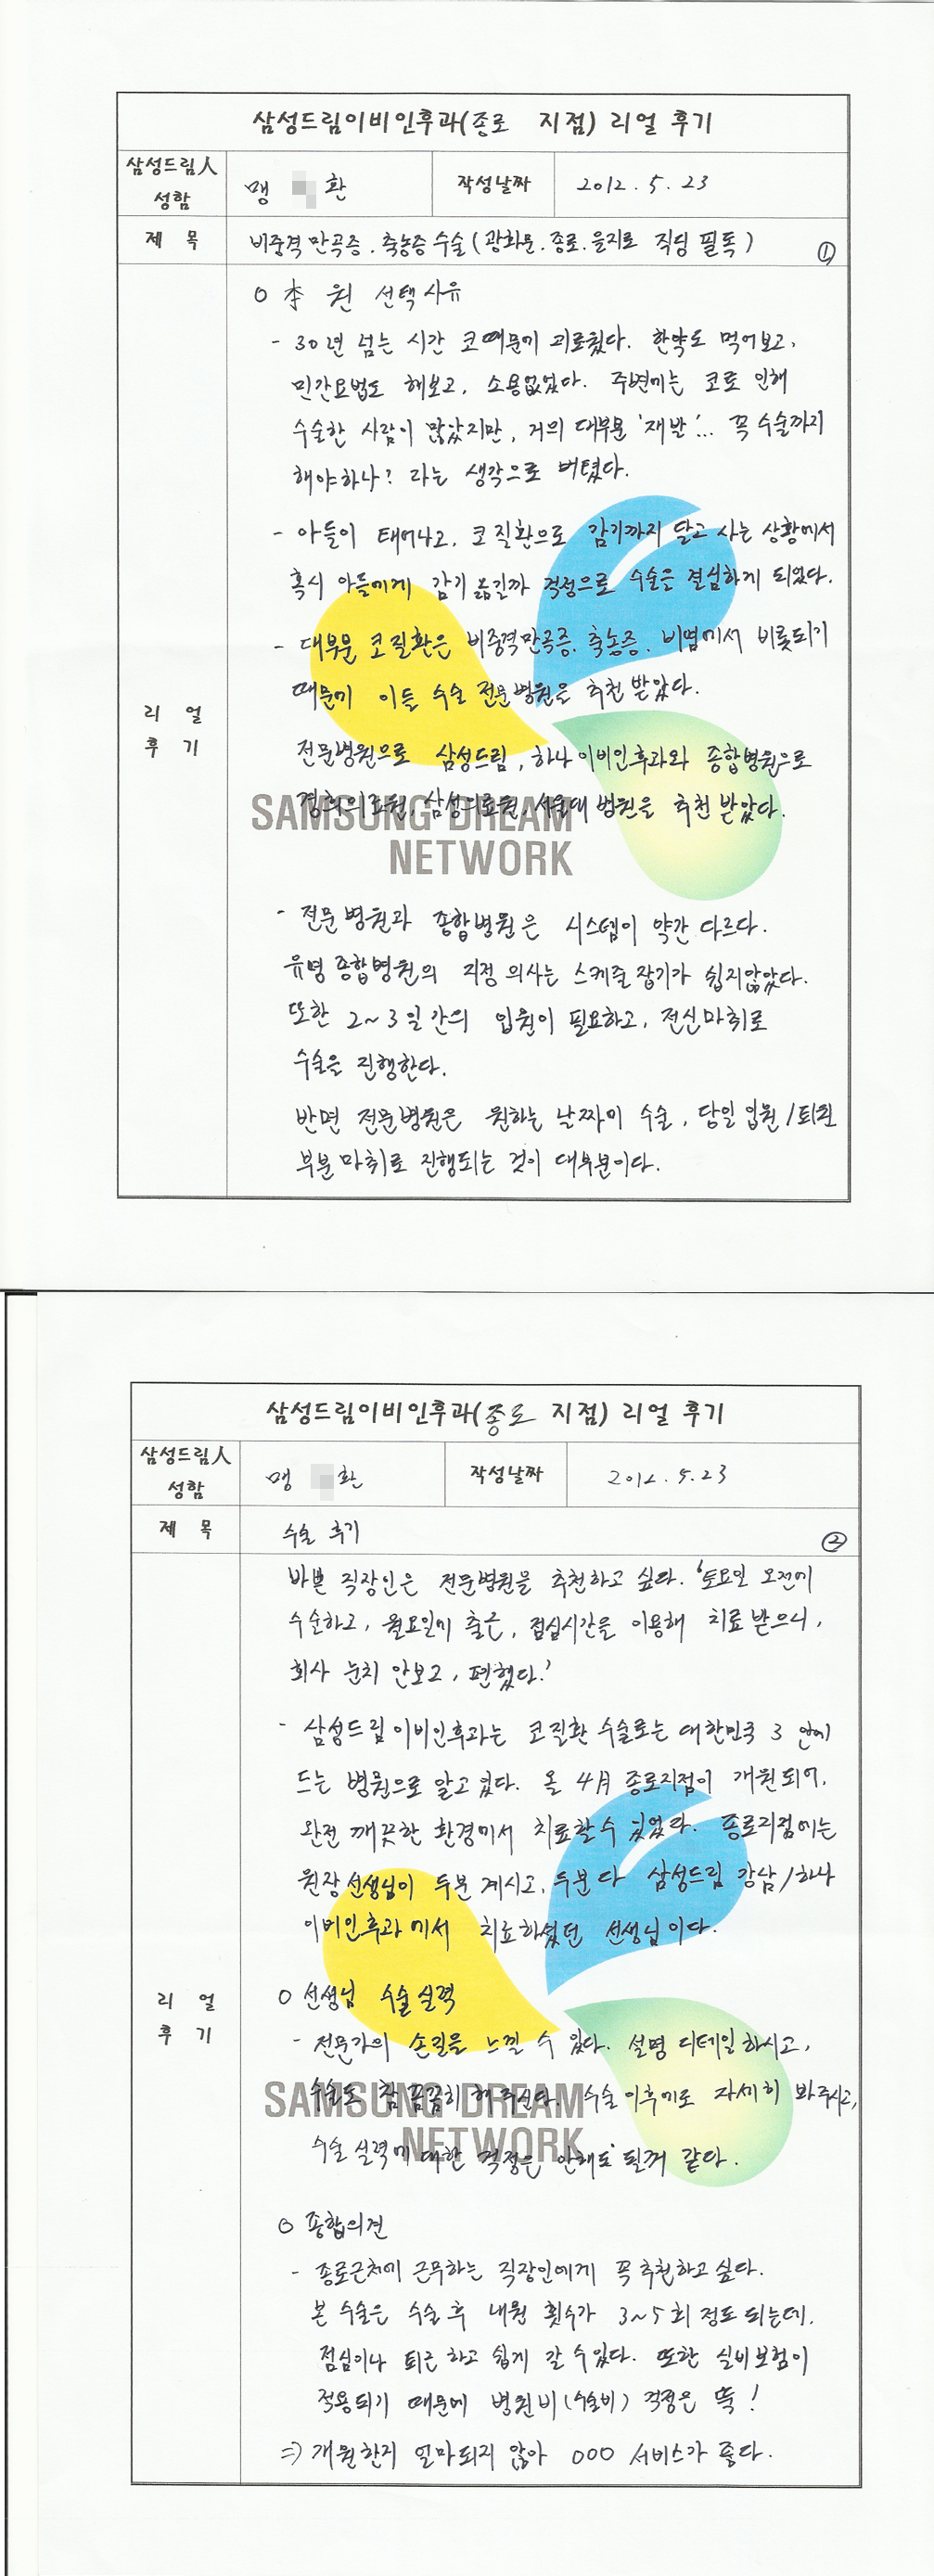 삼성드림이비인후과(종로 지점) 리얼 후기
삼성드림人 성함
맹 환
작성날짜
2012. 5. 23
제 목
비중격만곡증. 축농증 수술 (광화문. 종로. 을지로 직딩 필독) ①
리 얼 후 기
○ 本 원 선택사유
- 30년 넘는 시간 코때문에 괴로웠다. 한약도 먹어보고,
민간요법도 해보고, 소용없었다. 주변에는 코로 인해
수술한 사람이 많았지만, 거의 대부분 '재발'... 꼭 수술까지
해야하나? 라는 생각으로 버텼다.
- 아들이 태어나고, 코질환으로 감기까지 달고 사는 상황에서
혹시 아들에게 감기 옮길까 걱정으로 수술을 결심하게 되었다.
- 대부분 코질환은 비중격만곡증. 축농증. 비염에서 비롯되기
때문에 이들 수술 전문병원을 추천 받았다.
전문병원으로 삼성드림, 하나이비인후과와 종합병원으로
경희의료원, 삼성의료원, 서울대 병원을 추천 받았다.
SAMSUNG DREAM
NETWORK
- 전문병원과 종합병원은 시스템이 약간 다르다.
유명 종합병원의 지정 의사는 스케줄 잡기가 쉽지않았다.
또한 2~3일간의 입원이 필요하고, 전신마취로
수술을 진행한다.
반면 전문병원은 원하는 날짜에 수술, 당일 입원/퇴원
부분마취로 진행되는 것이 대부분이다.
삼성드림이비인후과(종로 지점) 리얼 후기
삼성드림人 성함
맹 환
작성날짜
2012. 5. 23
제 목
수술 후기 ②
리 얼 후 기
바쁜 직장인은 전문병원을 추천하고 싶다. '토요일 오전에
수술하고, 월요일에 출근, 점심시간을 이용해 치료 받으니,
회사 눈치 안보고, 편했다.'
- 삼성드림이비인후과는 코질환 수술로는 대한민국 3 안에
드는 병원으로 알고 있다. 올 4月 종로지점이 개원되어,
완전 깨끗한 환경에서 치료할 수 있었다. 종로지점에는
원장선생님이 두분 계시고, 두분 다 삼성드림 강남/하나
이비인후과에서 치료하셨던 선생님이다.
○ 선생님 수술 실력
- 전문가의 손길을 느낄 수 있다. 설명 디테일하시고,
수술도 참 꼼꼼히 해주신다. 수술 이후에도 자세히 봐주시고,
SAMSUNG DREAM
NETWORK
수술 실력에 대한 걱정은 안해도 될꺼 같다.
○ 종합의견
- 종로근처에 근무하는 직장인에게 꼭 추천하고 싶다.
본 수술은 수술 후 내원 횟수가 3~5회 정도 되는데,
점심이나 퇴근하고 쉽게 갈 수 있다. 또한 실비보험이
적용되기 때문에 병원비(수술비) 걱정은 뚝!
⇒ 개원한지 얼마되지 않아 OOO 서비스가 좋다.